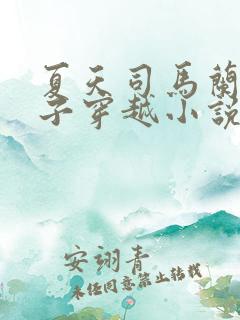 夏天司馬蘭
子穿越小說
安翊青
未经同意禁止转载